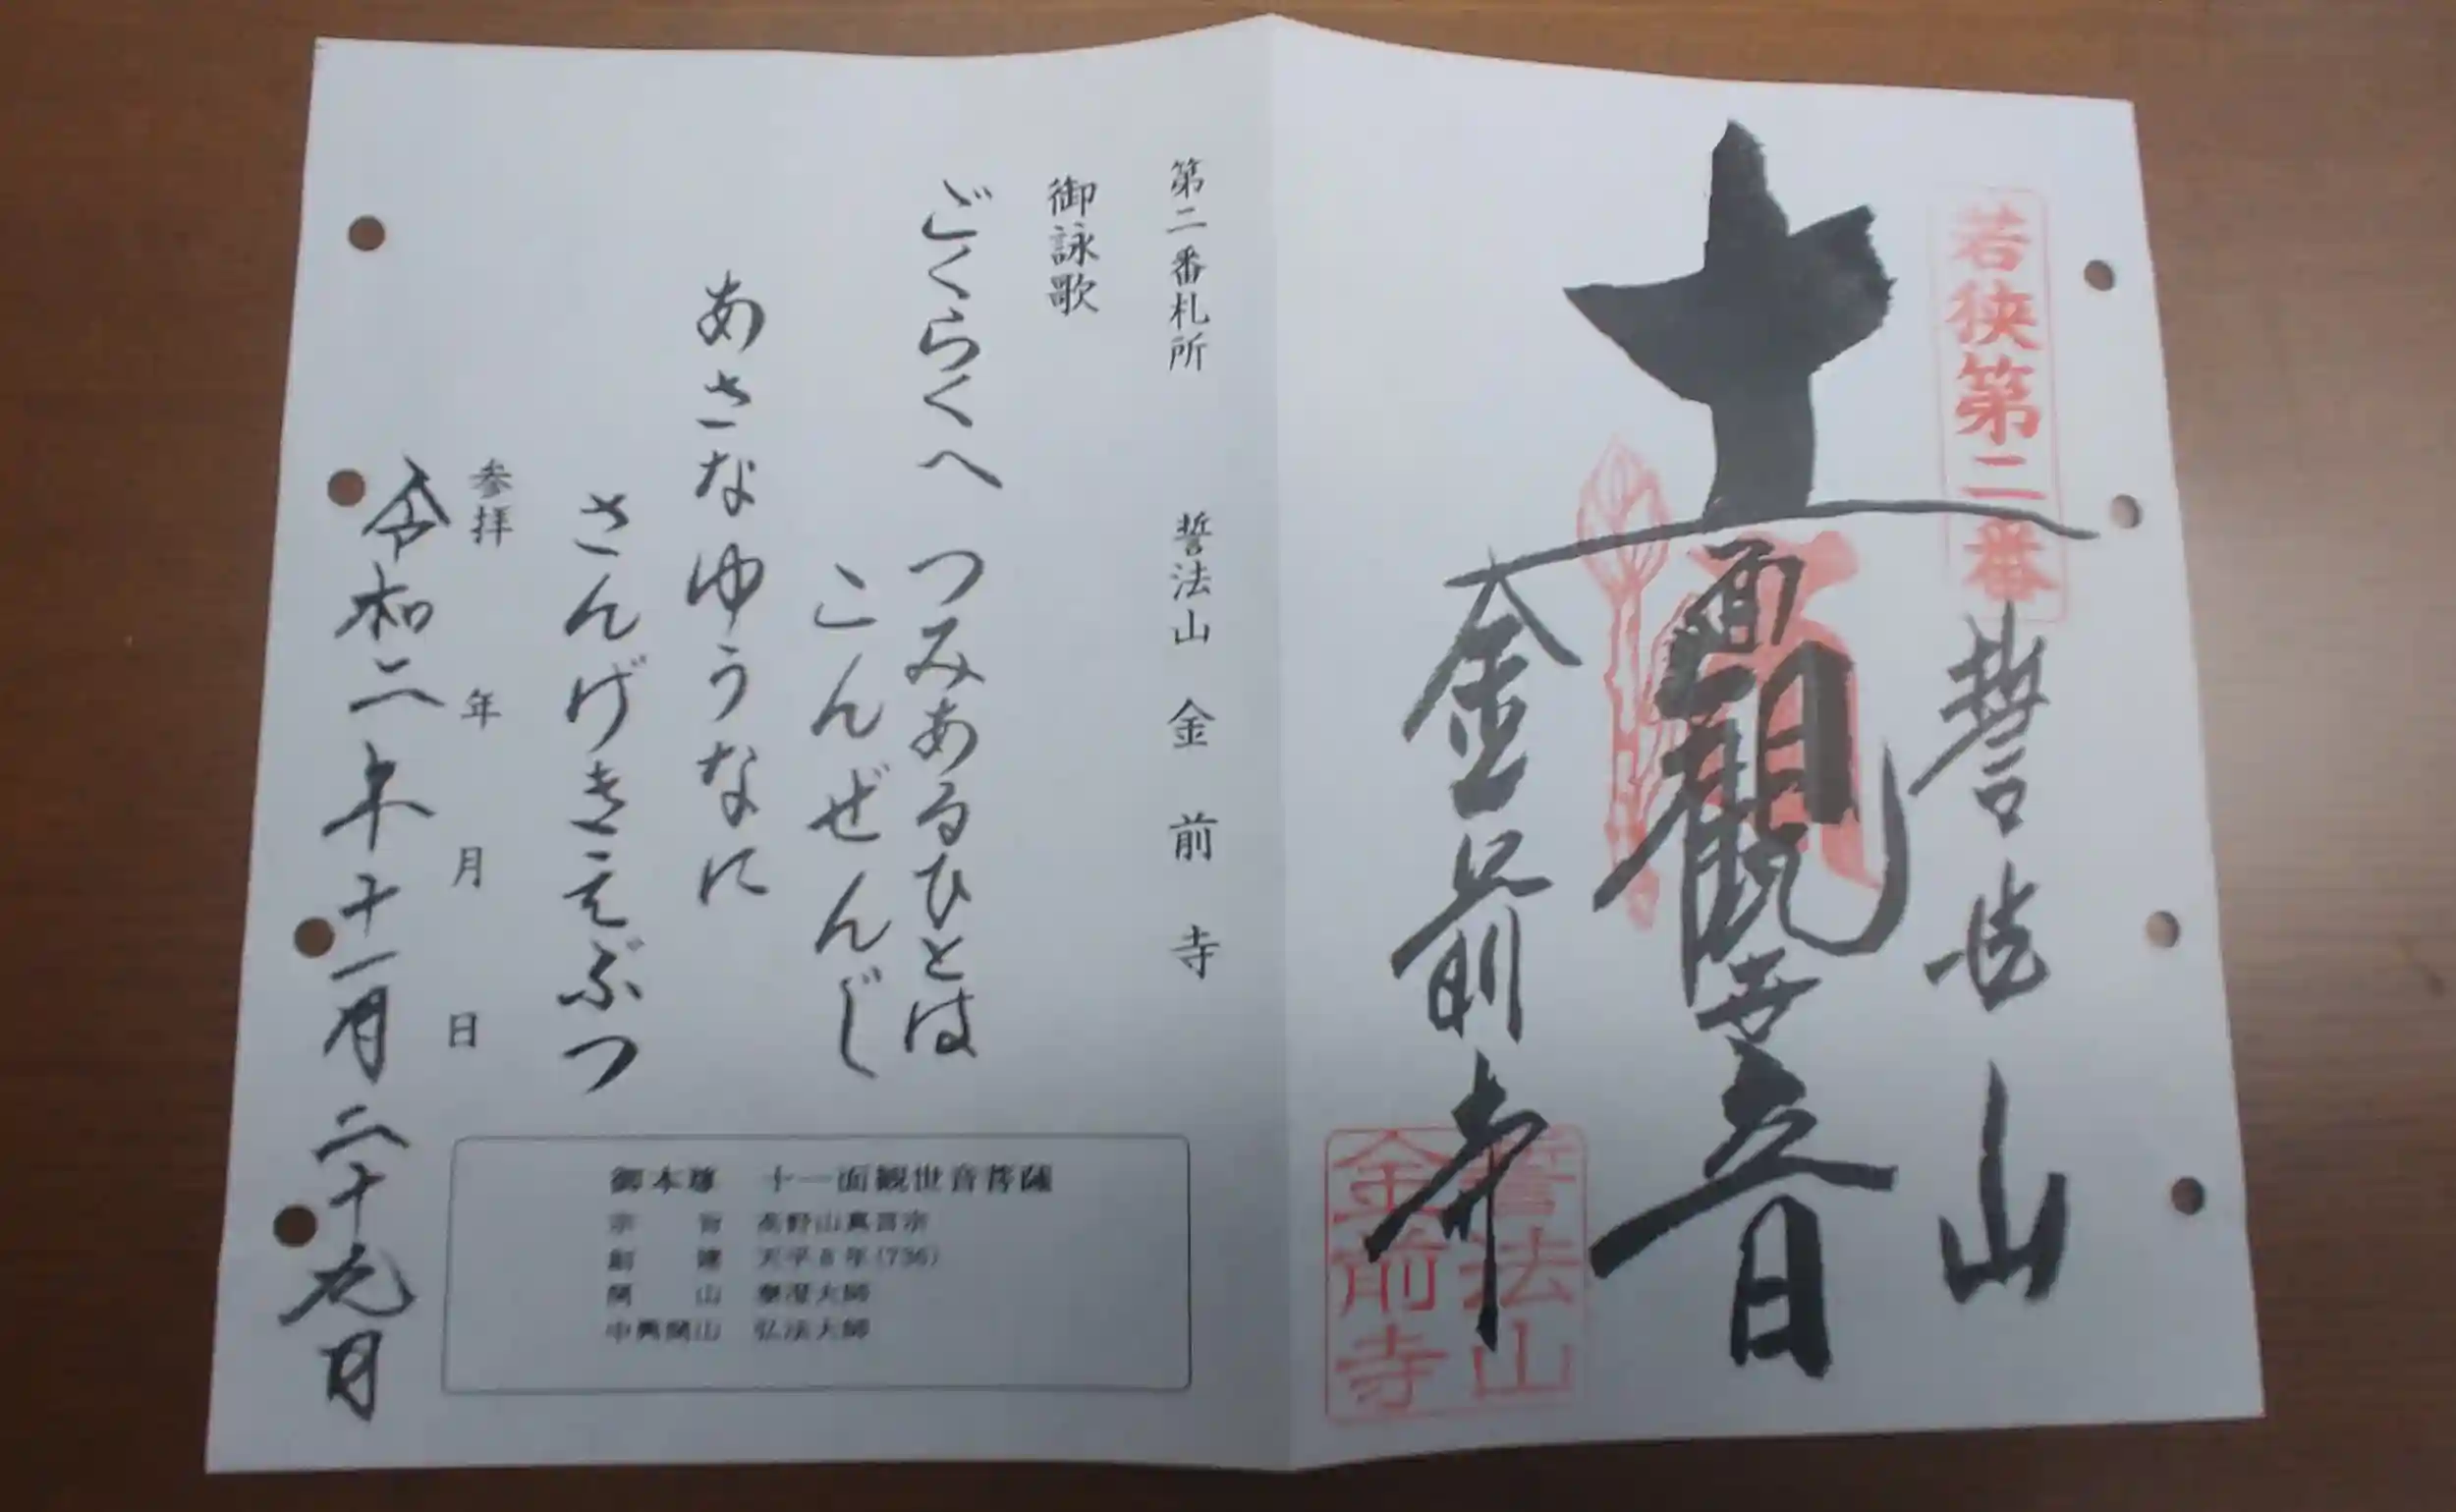 若狭第二番
誓法山
十一面観世音
金前寺
誓法山
金前寺
第二番札所 誓法山 金前寺
御詠歌
ごくらくへ つみあるひとは
こんぜんじ
あさなゆうなに
さんげきえぶつ
参拝 年 月 日
令和二年十一月二十九日
御本尊 十一面観世音菩薩
宗 旨 高野山真言宗
創 建 天平8年(736)
開 山 泰澄大師
中興開山 弘法大師